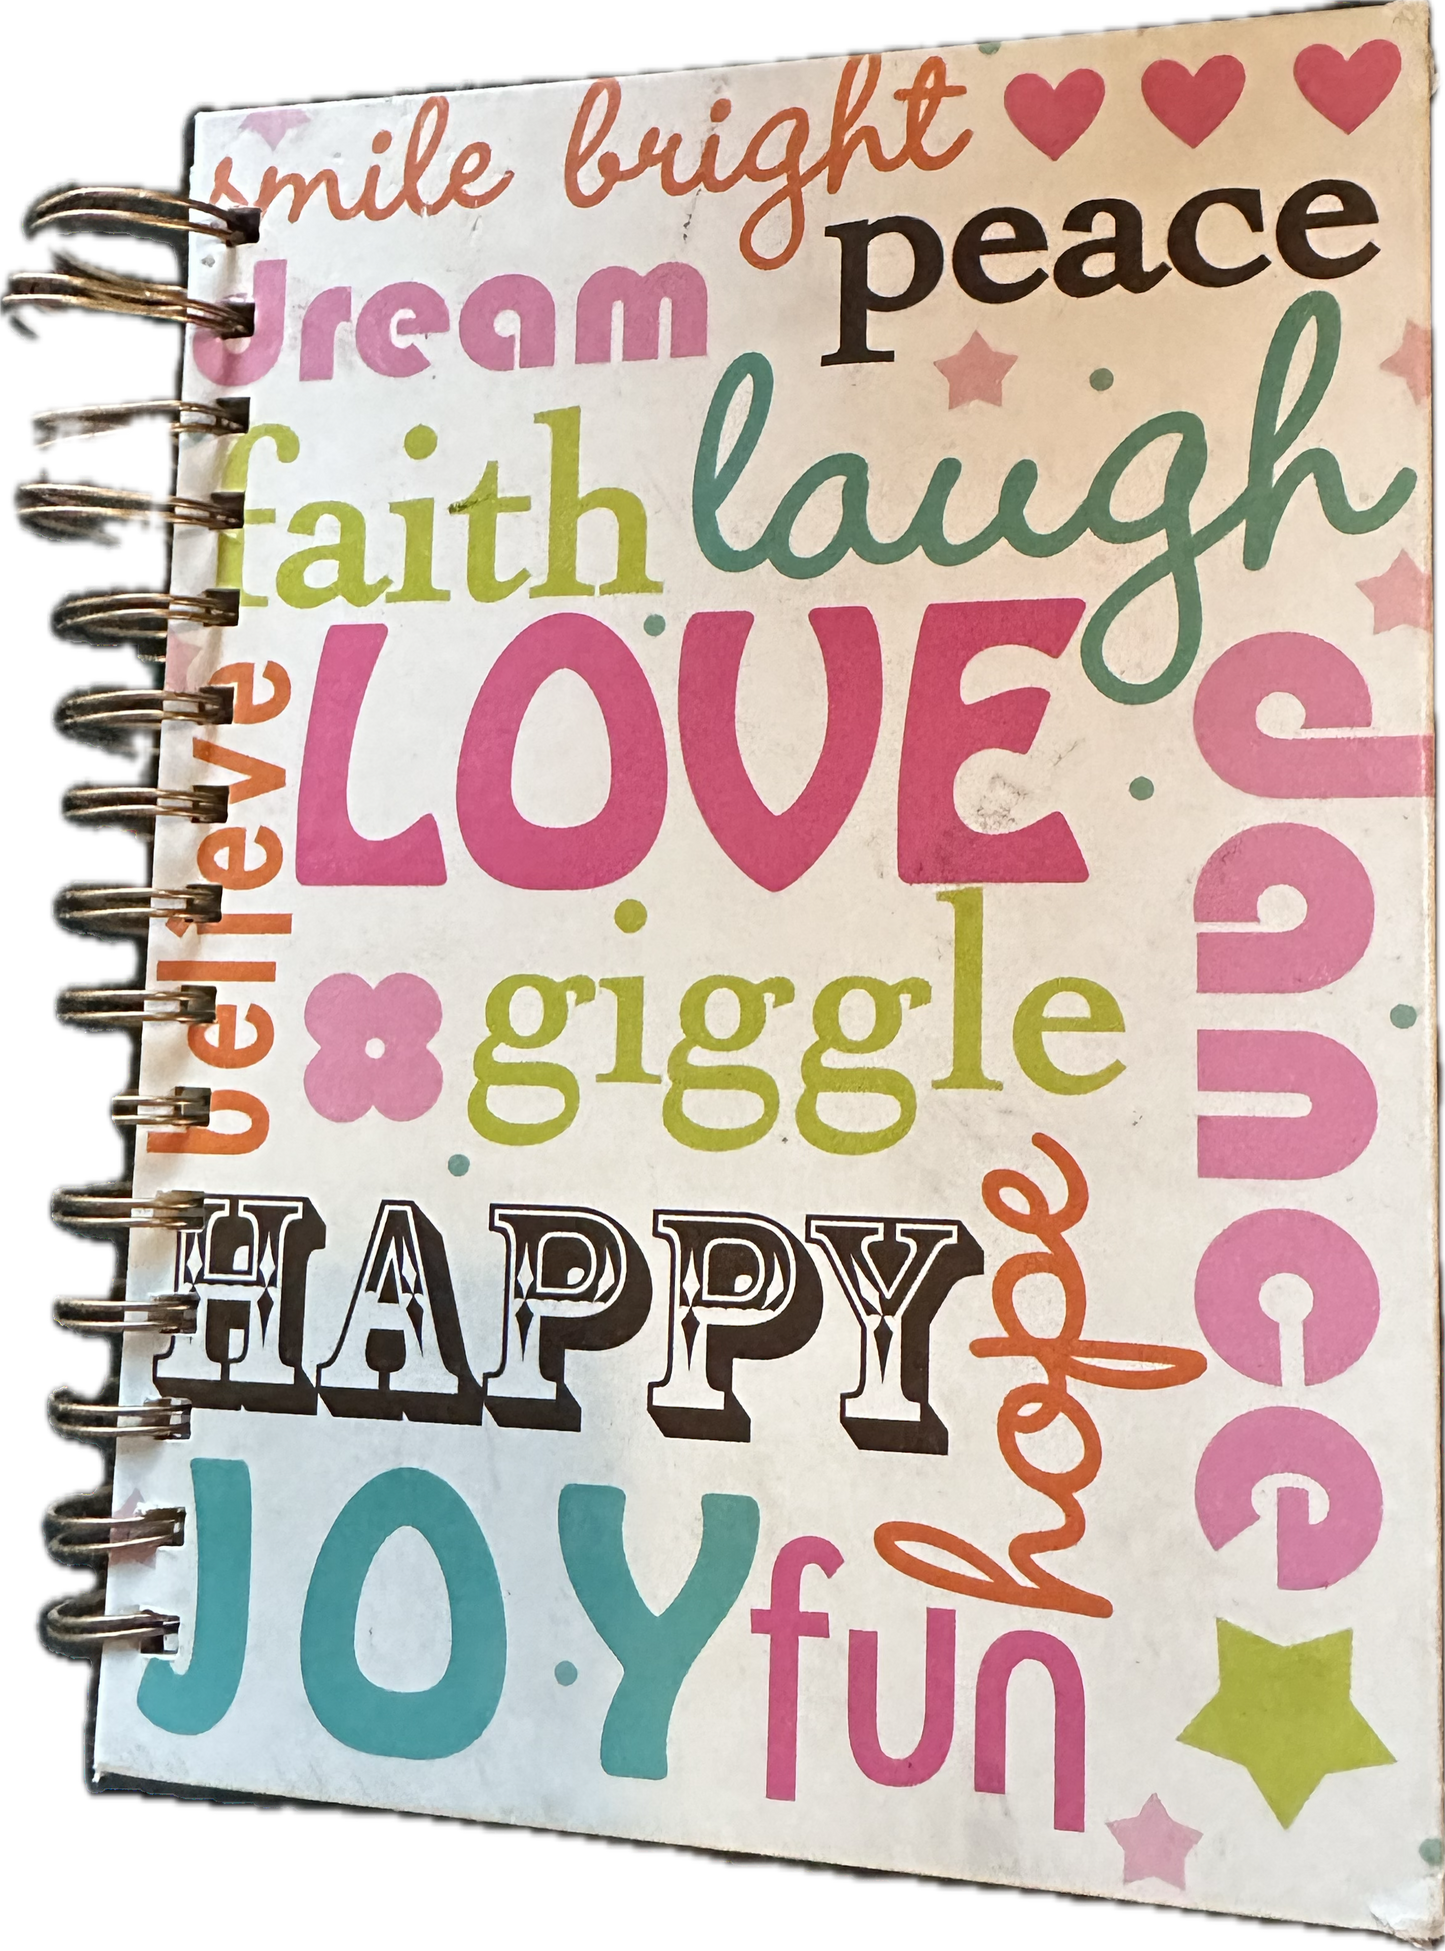 smile bright
peace
dream
laugh
faith
LOVE
believe
dance
giggle
HAPPY
hope
JOY
fun